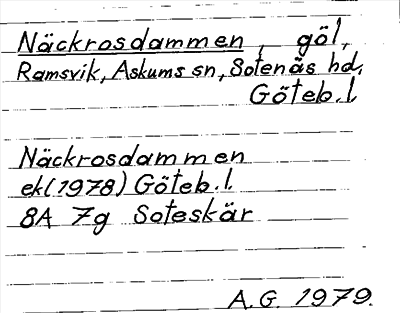 Näckrosdammen, göl,
Ramsvik, Askums sn, Sotenäs hd,
Göteb.l.
Näckrosdammen
ek(1978) Göteb.l.
8A 7g Soteskär
A.G. 1979.